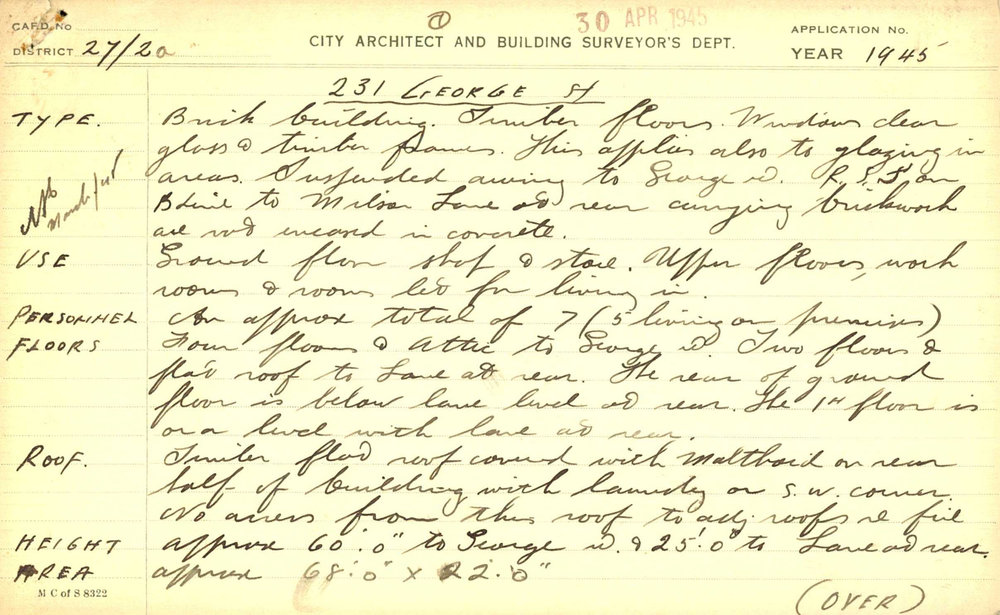 CARD No
①
30 APR 1945
APPLICATION No.
DISTRICT 27/2a
CITY ARCHITECT AND BUILDING SURVEYOR'S DEPT.
YEAR 1945
231 GEORGE St
TYPE. Brick building. Timber floors. Windows clear
glass & timber frames. This applies also to glazing in
areas. Suspended awning to George st. R.S.J's on
B Line to Milson Lane at rear carrying brickwork
are not encased in concrete.
USE Ground floor shop & store. Upper floors, work
rooms & rooms let for living in.
PERSONNEL An approx total of 7 (5 living on premises)
FLOORS Four floors & Attic to George st. Two floors &
flat roof to Lane at rear. The rear of ground
floor is below lane level at rear. The 1st floor is
on a level with lane at rear.
ROOF. Timber flat roof covered with Malthoid on rear
half of building with laundry on S.W. corner.
No access from this roof to adj. roofs
HEIGHT approx 60'.0" to George st. & 25'.0" to Lane at rear.
AREA approx 68'.0" x 22'.0"
M C of S 8322
(OVER)